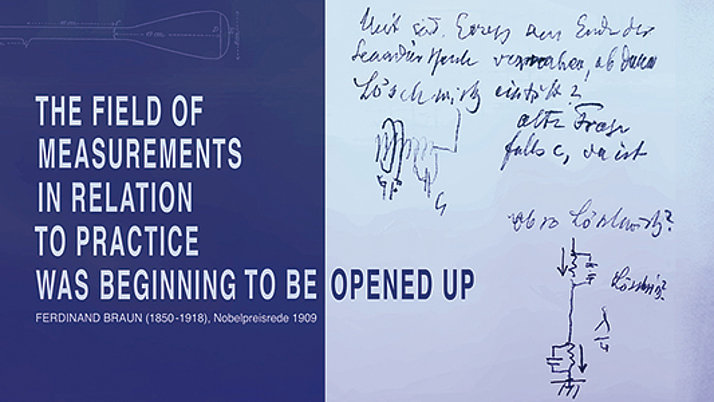 THE FIELD OF
MEASUREMENTS
IN RELATION
TO PRACTICE
WAS BEGINNING TO BE OPENED UP
FERDINAND BRAUN (1850-1918), Nobelpreisrede 1909
am Ende der
ob dann
Löschwirk eintritt?
alte Frage
falls C, da ist
ob so Löschwirk?
Löschwirk?
λ/4